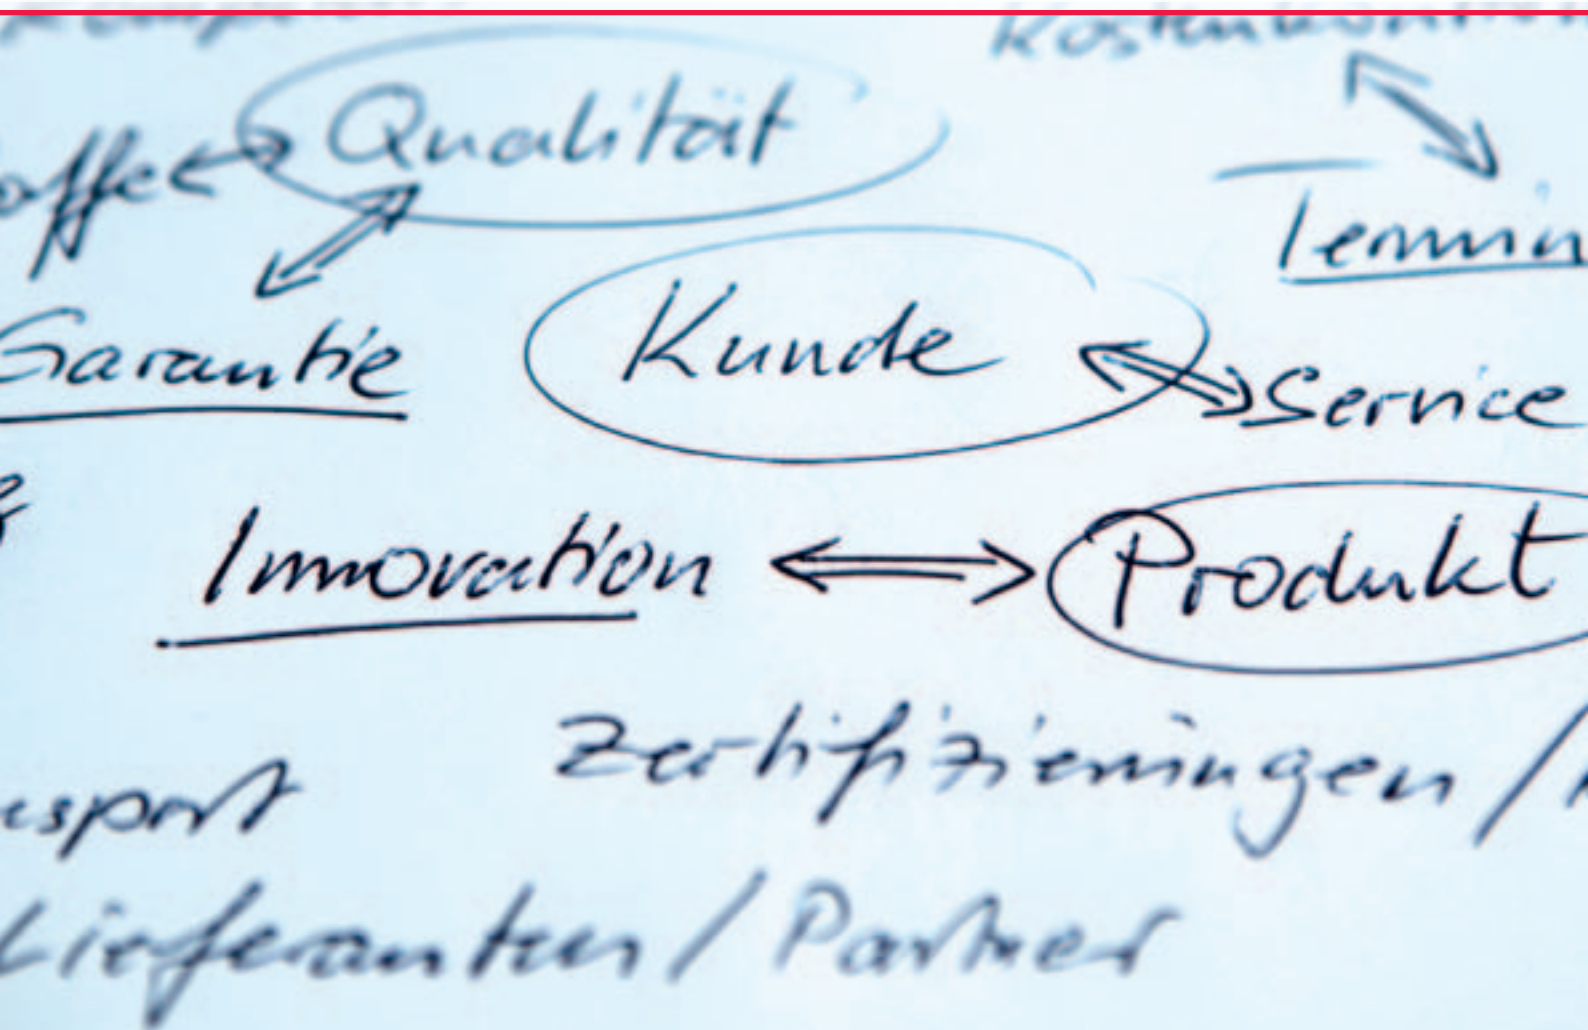 Qualität
Termin
Garantie
Kunde
Service
Innovation
Produkt
Zertifizierungen /
Lieferanten / Partner